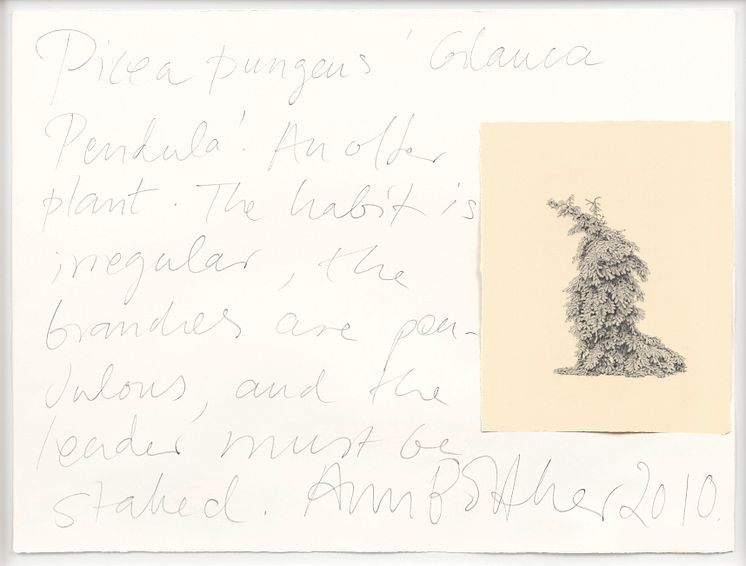 Picea pungens 'Glauca
Pendula'. An older
plant. The habit is
irregular, the
branches are pen-
dulous, and the
leader must be
staked. Ann Böttcher 2010.